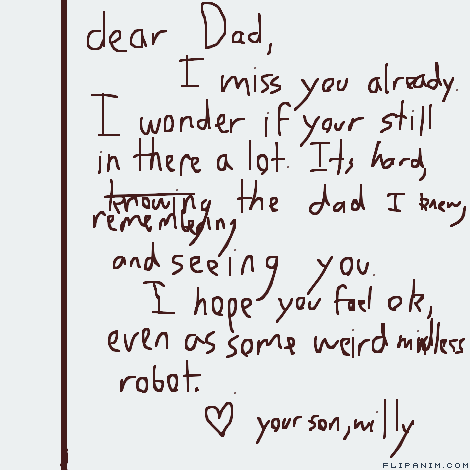 dear Dad,
I miss you already.
I wonder if your still
in there a lot. Its hard,
knowing the dad I knew,
remembering
and seeing you.
I hope you feel ok,
even as some weird mindless
robot.
♡ your son, willy
FLIPANIM.COM